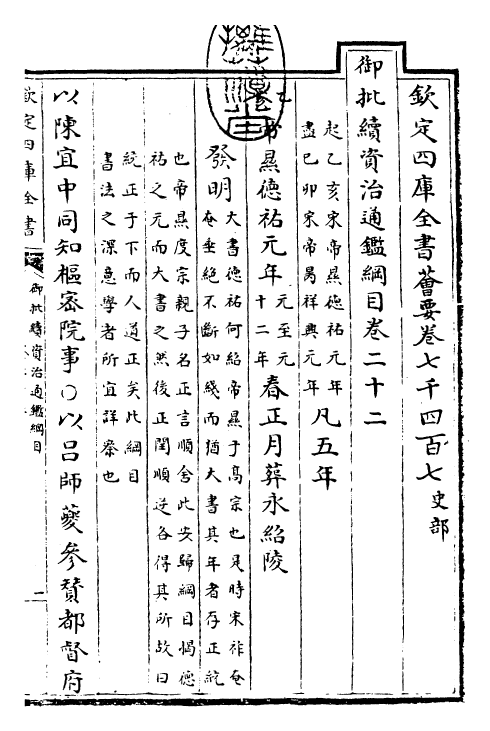 欽定四庫全書薈要卷七千四百七 史部
御批續資治通鑑綱目卷二十二
起乙亥宋帝㬎德祐元年
盡己卯宋帝昺祥興元年
凡五年
乙亥
帝㬎德祐元年
元至元
十二年
春正月葬永紹陵
發明
大書德祐何紹帝㬎于高宗也是時宋祚奄
奄垂絕不斷如綫而猶大書其年者存正統
也帝㬎度宗親子名正言順舍此安歸綱目揭德
祐之元而大書之然後正閏順逆各得其所故曰
統正于下而人道正矣此綱目
書法之深意學者所宜詳察也
以陳宜中同知樞密院事○以呂師夔參贊都督府
欽定四庫全書
御批續資治通鑑綱目